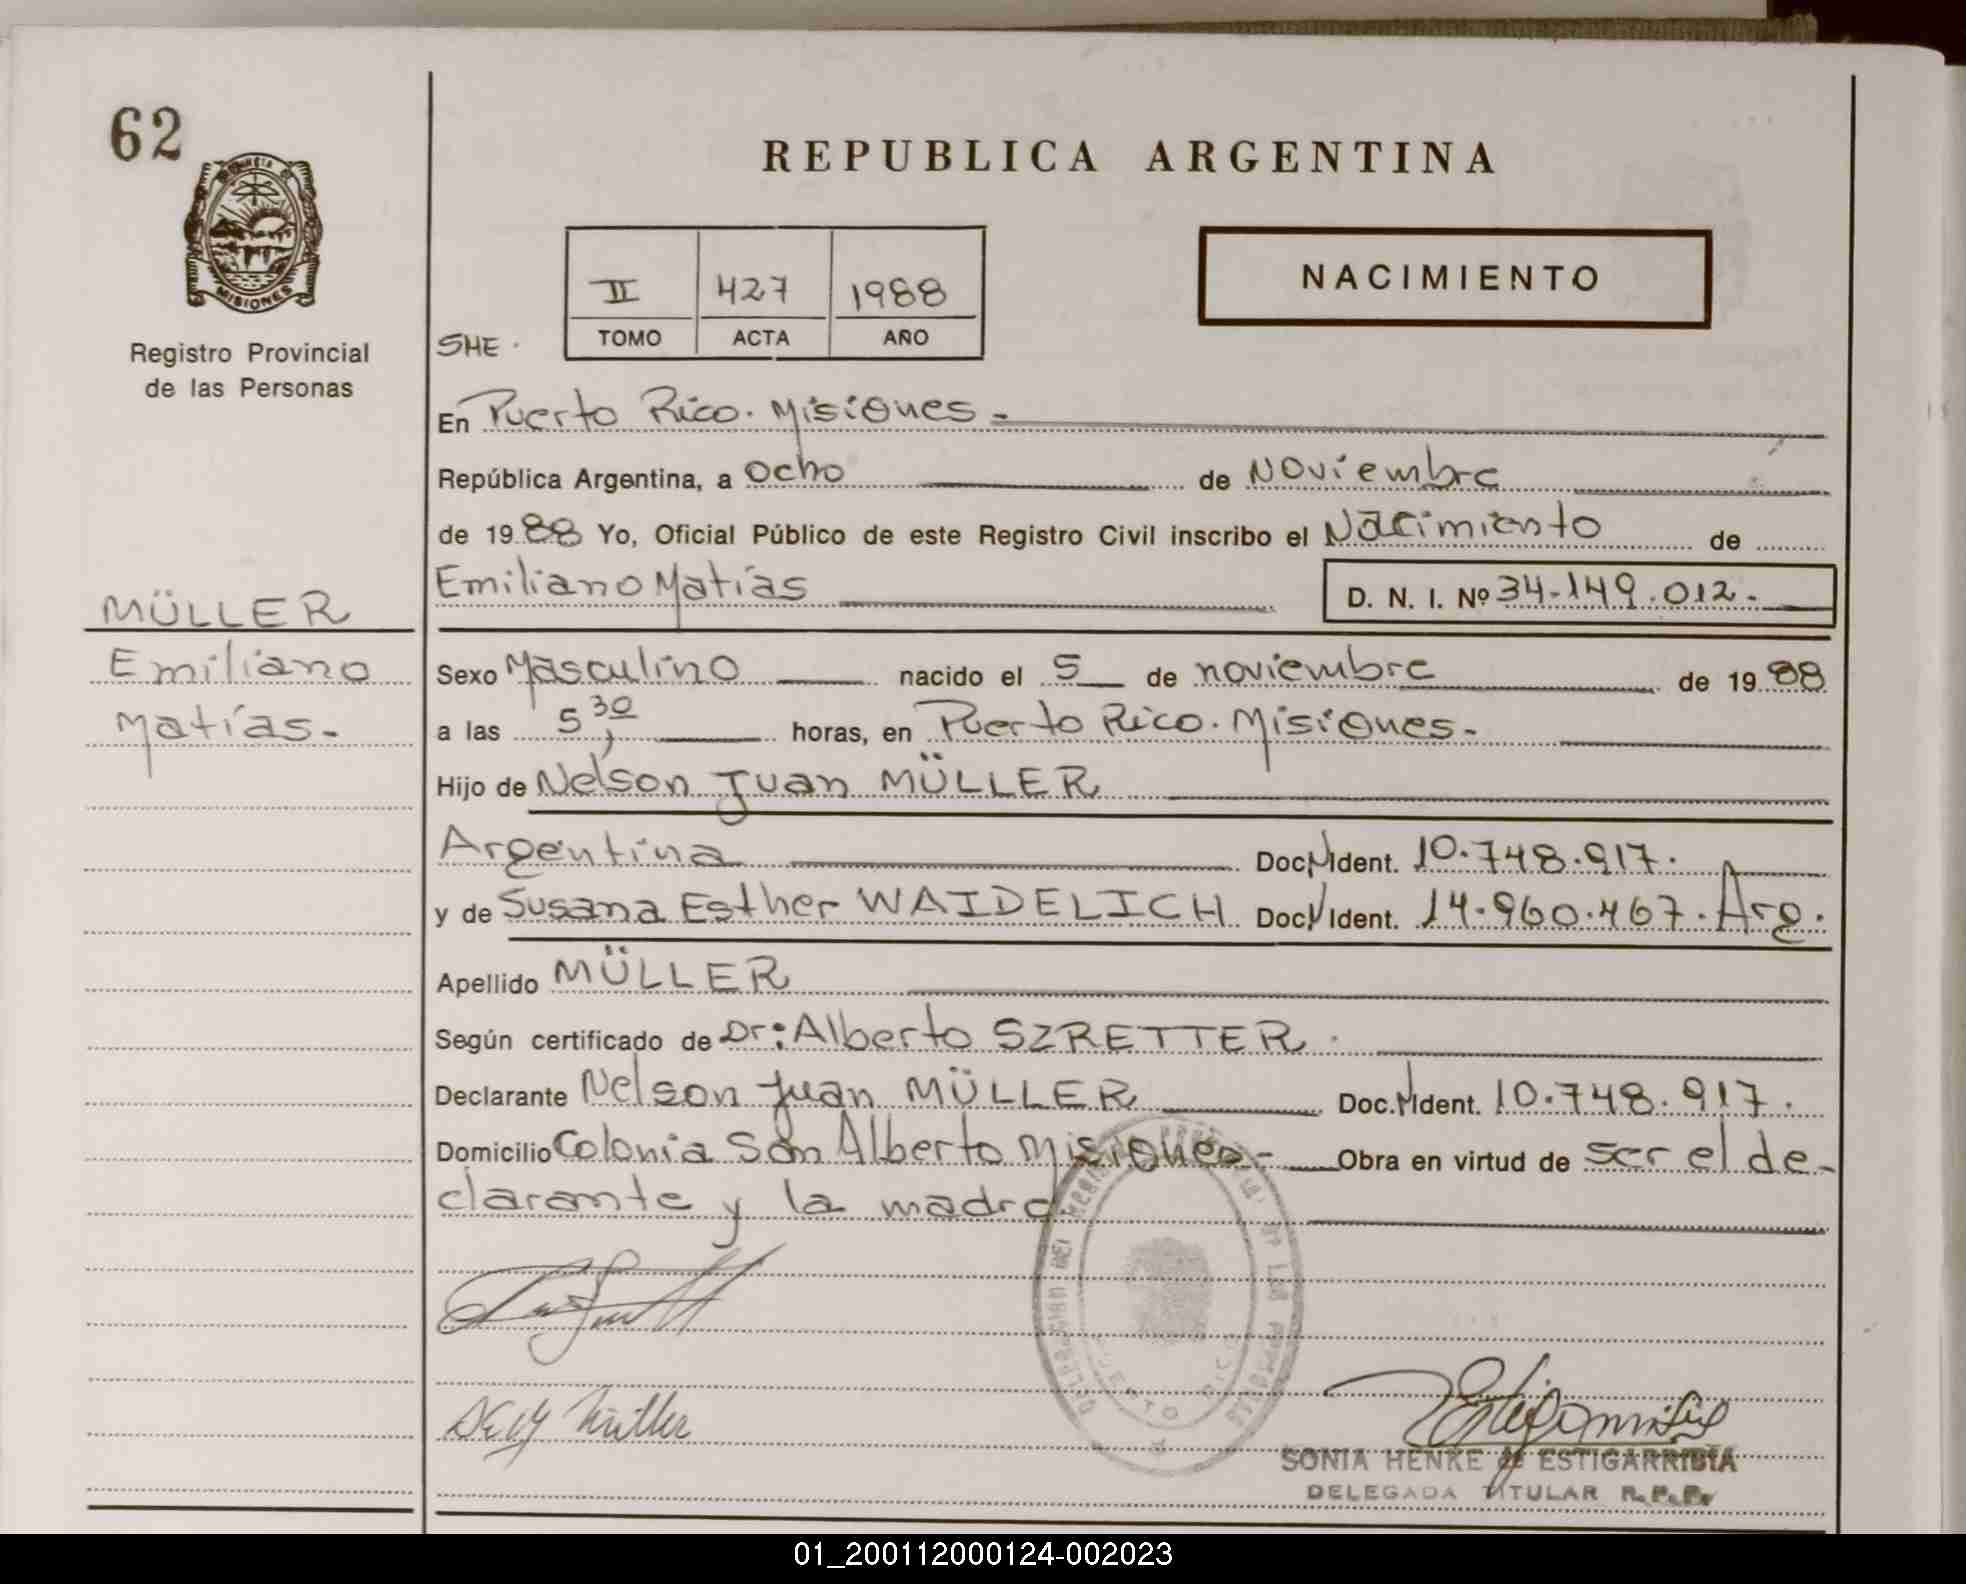 62
REPUBLICA ARGENTINA
MISIONES
Registro Provincial
de las Personas
SHE.
II 427 1988
TOMO ACTA AÑO
NACIMIENTO
En Puerto Rico. Misiones-
República Argentina, a ocho de Noviembre
de 1988 Yo, Oficial Público de este Registro Civil inscribo el Nacimiento de
Emiliano Matías D. N. I. Nº 34.149.012.-
MÜLLER
Emiliano
Matías.-
Sexo Masculino nacido el 5 de noviembre de 1988
a las 5,30 horas, en Puerto Rico. Misiones.-
Hijo de Nelson Juan MÜLLER
Argentina Doc. Ident. 10.748.917.
y de Susana Esther WAIDELICH Doc. Ident. 14.960.467. Arg.
Apellido MÜLLER
Según certificado de Dr: Alberto SZRETTER.
Declarante Nelson Juan MÜLLER Doc. Ident. 10.748.917.
Domicilio Colonia San Alberto Misiones- Obra en virtud de ser el de-
clarante y la madre
PUERTO RICO
SONIA HENKE de ESTIGARRIBIA
DELEGADA TITULAR R.P.P.
01_200112000124-002023